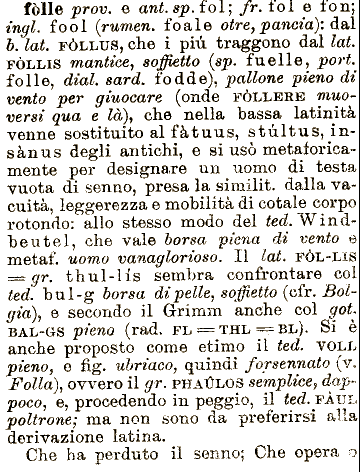 fòlle prov. e ant. sp. fol; fr. fol e fon;
ingl. fool (rumen. foale otre, pancia): dal
b. lat. FÒLLUS, che i più traggono dal lat.
FÒLLIS mantice, soffietto (sp. fuelle, port.
folle, dial. sard. fodde), pallone pieno di
vento per giuocare (onde FÒLLERE muo-
versi qua e là), che nella bassa latinità
venne sostituito al fàtuus, stúltus, in-
sànus degli antichi, e si usò metaforica-
mente per designare un uomo di testa
vuota di senno, presa la similit. dalla va-
cuità, leggerezza e mobilità di cotale corpo
rotondo: allo stesso modo del ted. Wind-
beutel, che vale borsa piena di vento e
metaf. uomo vanaglorioso. Il lat. FÒL-LIS
= gr. thul-lís sembra confrontare col
ted. bul-g borsa di pelle, soffietto (cfr. Bol-
gia), e secondo il Grimm anche col got.
BAL-GS pieno (rad. FL = THL = BL). Si è
anche proposto come etimo il ted. VOLL
pieno, e fig. ubriaco, quindi forsennato (v.
Folla), ovvero il gr. PHAÛLOS semplice, dap-
poco, e, procedendo in peggio, il ted. FÀUL
poltrone; ma non sono da preferirsi alla
derivazione latina.
Che ha perduto il senno; Che opera o